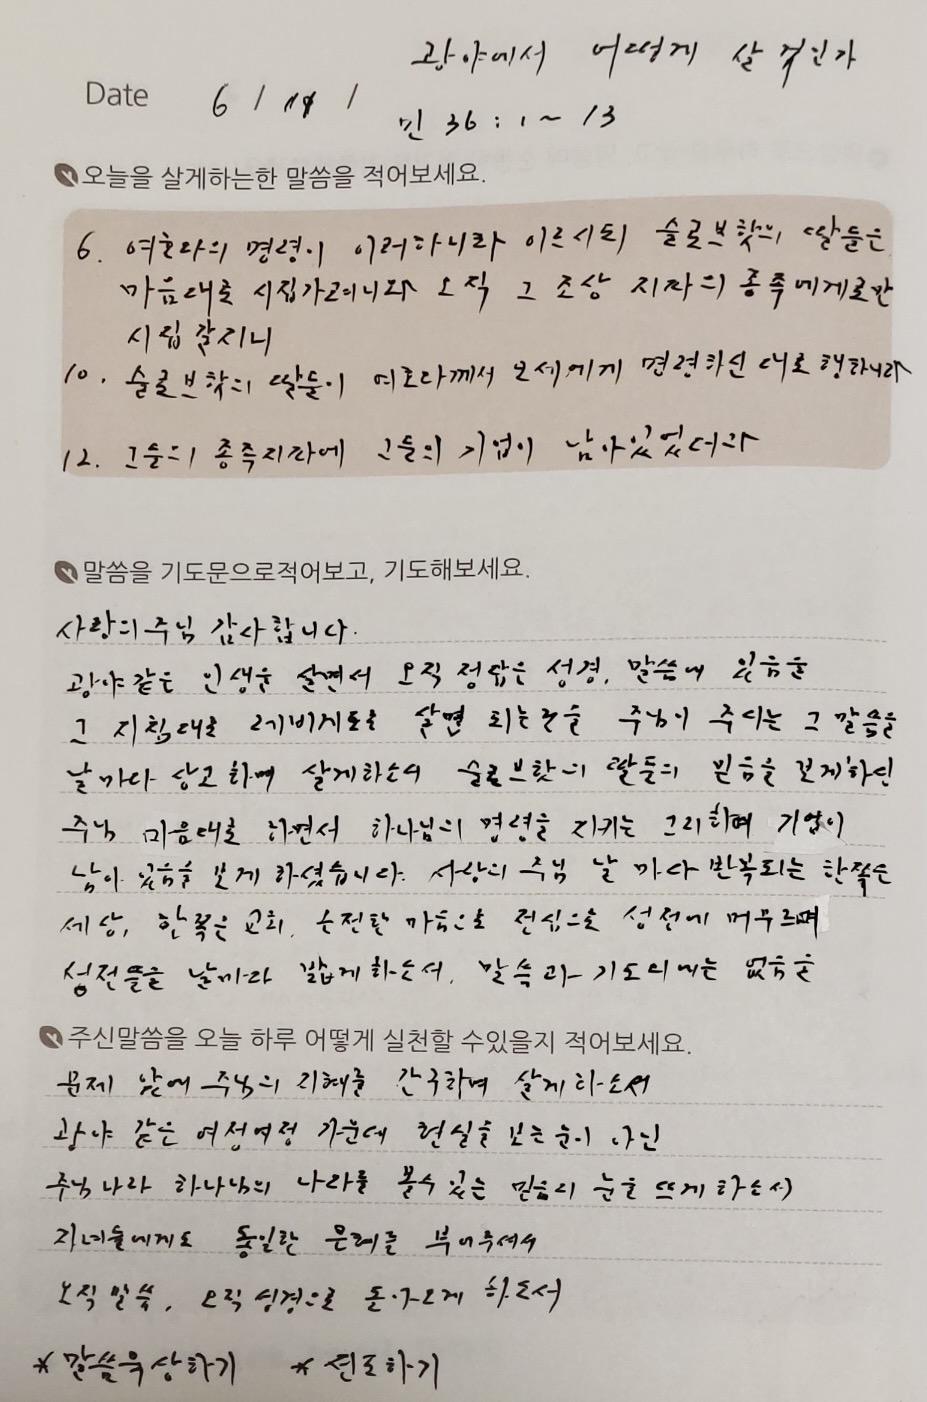 광야에서 어떻게 살 것인가
Date 6 / /
민 36 : 1 ~ 13
오늘을 살게하는한 말씀을 적어보세요.
6. 여호와의 명령이 이러하니라 이르시되 슬로브핫의 딸들은
마음대로 시집가려니와 오직 그 조상 지파의 종족에게로만
시집 갈지니
10. 슬로브핫의 딸들이 여호와께서 모세에게 명령하신 대로 행하니라
12. 그들의 종족지파에 그들의 기업이 남아있었더라
말씀을 기도문으로적어보고, 기도해보세요.
사랑의주님 감사합니다.
광야같은 인생을 살면서 오직 정답은 성경, 말씀에 있음을
그 지침대로 살면 되는것을 주님이 주시는 그 말씀을
날마다 상고하며 살게하소서 슬로브핫의 딸들의 믿음을 보게하신
주님 마음대로 하면서 하나님의 명령을 지키는 그리하며 기업이
남아 있음을 보게 하셨습니다. 사랑의 주님 날마다 반복되는 한쪽은
세상, 한쪽은 교회, 온전한 마음으로 전심으로 성전에 머무르며
성전뜰을 날마다 밟게하소서, 말씀과 기도외에는 없음을
주신말씀을 오늘 하루 어떻게 실천할 수있을지 적어보세요.
문제 앞에 주님의 지혜를 간구하며 살게하소서
광야 같은 여정여정 가운데 현실을 보는눈이 아닌
주님나라 하나님의 나라를 볼수있는 믿음의 눈을 뜨게하소서
자녀들에게도 동일한 은혜를 부어주셔서
오직 말씀, 오직 성경으로 돌아오게 하소서
* 말씀묵상하기 * 선포하기